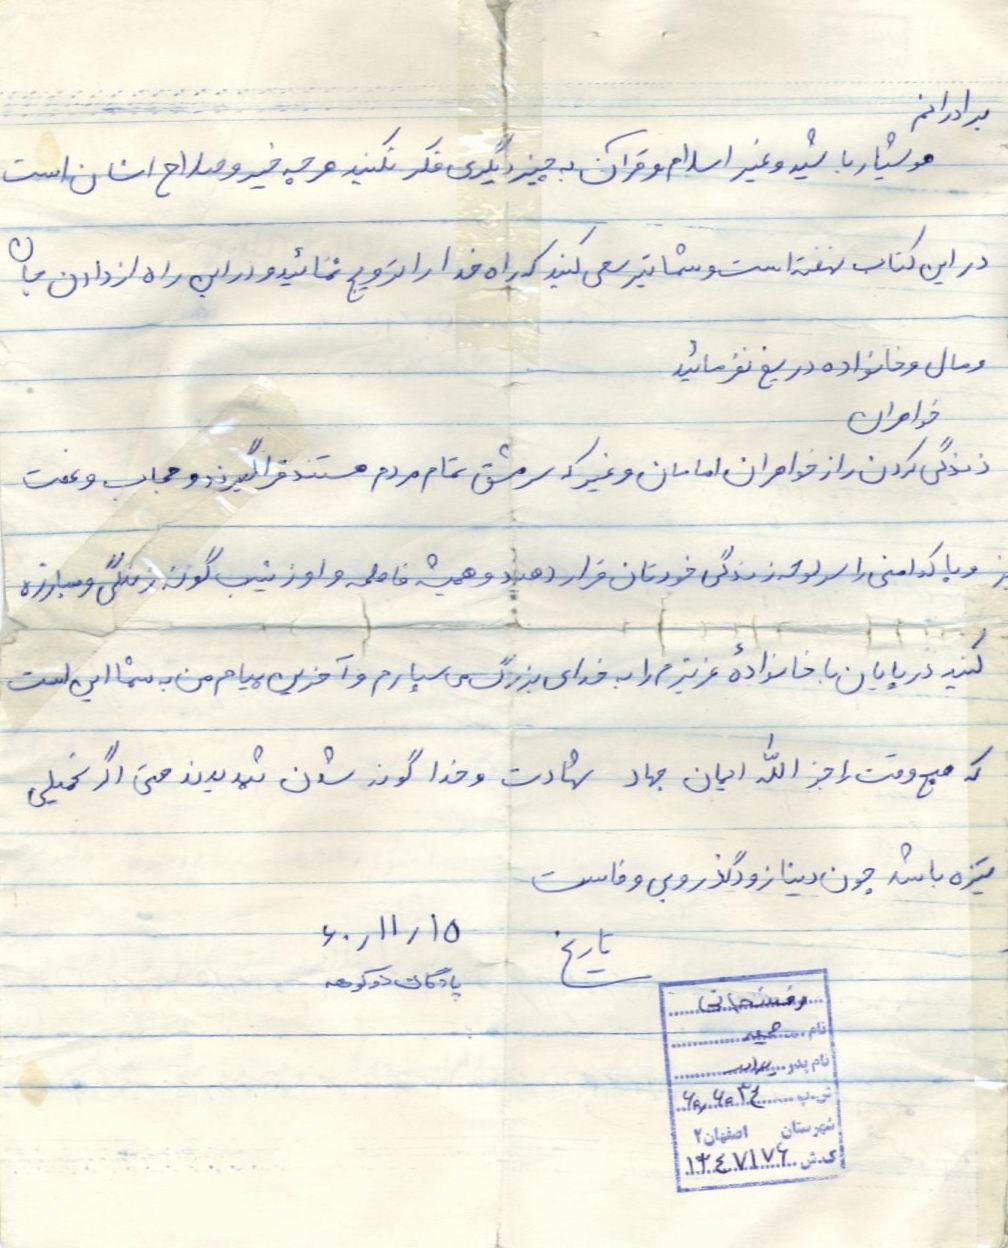 برادرانم
هوشیار باشید و غیر اسلام و قرآن به چیز دیگری فکر نکنید هر چه خیر و صلاح انسان است
در این کتاب نهفته است و شما نیز سعی کنید که راه خدا را ترویج نمائید و در این راه از دادن جان
و مال و خانواده دریغ نفرمائید
خواهران
زندگی کردن را از خواهران امامان و غیر که سرمشق تمام مردم هستند فراگیرند و حجاب و عفت
و پاکدامنی را سرلوحه زندگی خودتان قرار دهید و همیشه فاطمه وار و زینب گونه زندگی و مبارزه
کنید در پایان خانواده عزیزم را به خدای بزرگ می سپارم و آخرین پیام من به شما این است
که هیچ وقت را جز الله ایمان جهاد شهادت و خدا گونه شدن ندهید حتی اگر خیلی
باشد چون دنیا زودگذر و بی وفاست
تاریخ ۶۰/۱۱/۱۵
پادگان دوکوهه
نام حمید
نام پدر
ش.پ
شهرستان اصفهان ۲
ک.ش ۱۳۴۷۱۷۶